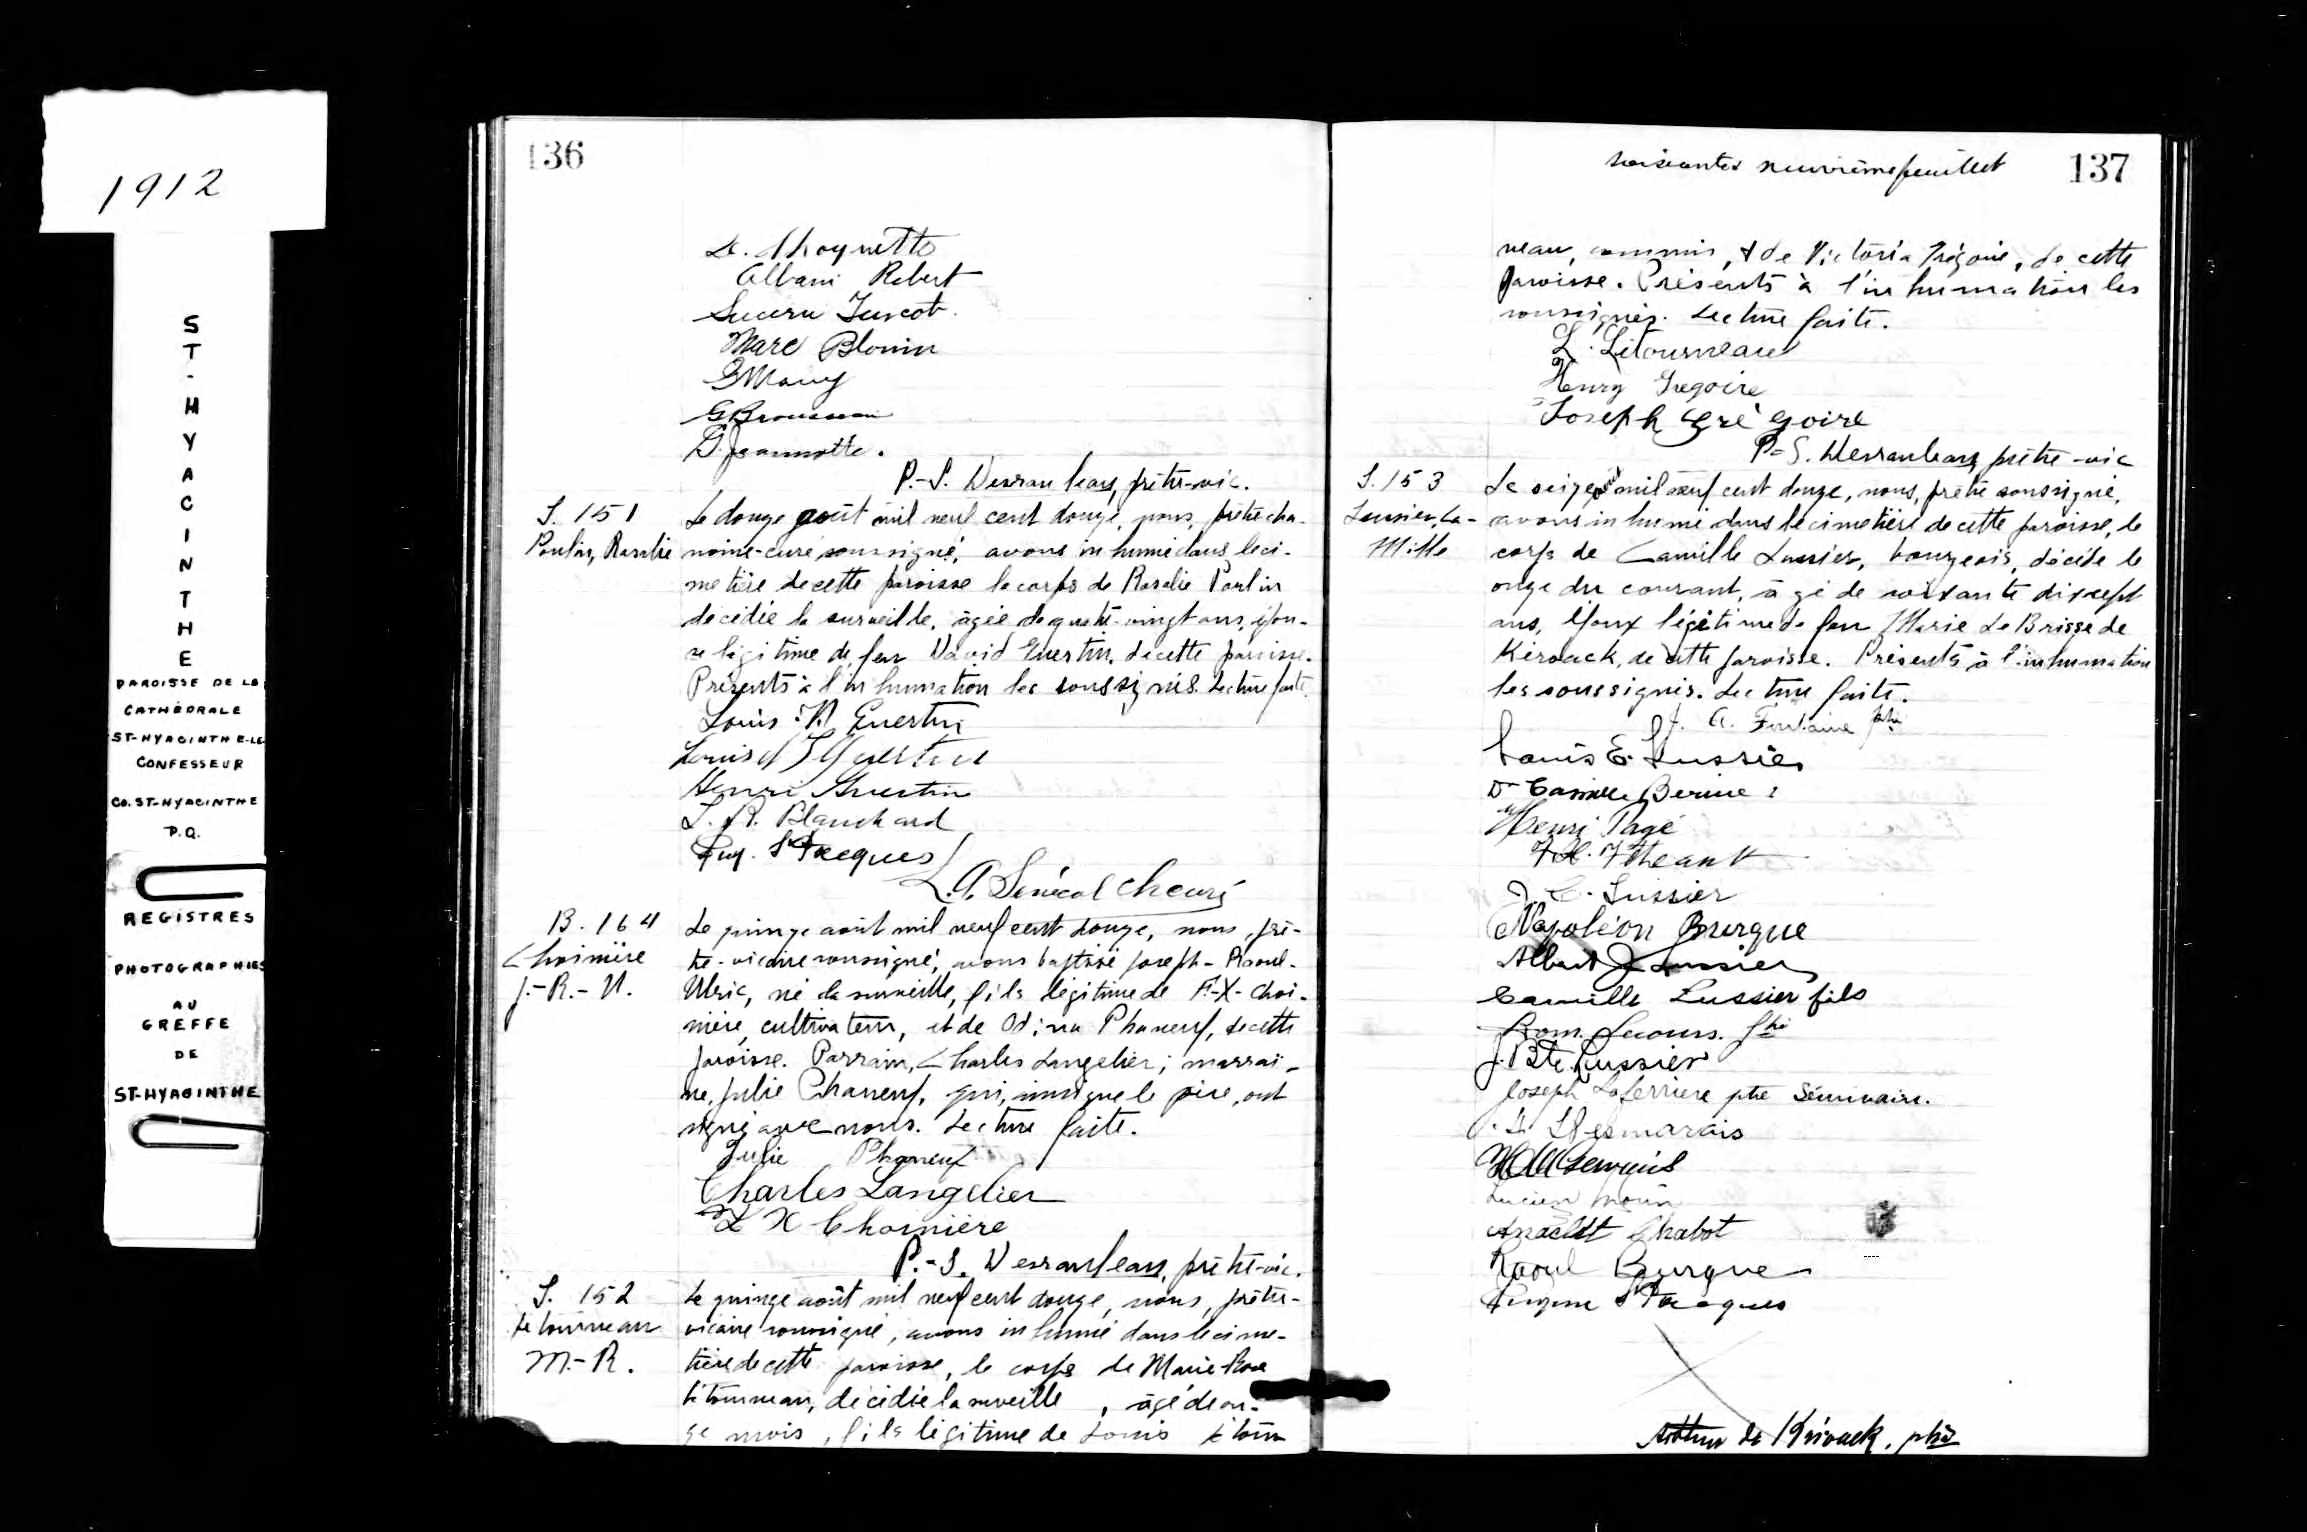 1912
ST-HYACINTHE
PAROISSE DE LA
CATHÉDRALE
ST-HYACINTHE-LE
CONFESSEUR
CO. ST-HYACINTHE
P.Q.
REGISTRES
PHOTOGRAPHIES
AU
GREFFE
DE
ST-HYACINTHE
136
Albani Robert
Turcot.
Marc Blouin
G Brousseau
D. Jeannotte.
P.-S. Desranleau, prêtre-vic.
S. 151
Poulin, Rosalie
Le douze août mil neuf cent douze, nous, prêtre cha-
noine-curé soussigné, avons inhumé dans le ci-
metière de cette paroisse le corps de Rosalie Poulin
décédée la surveille, âgée de quatre-vingt ans, épou-
se légitime de feu David Guertin, de cette paroisse.
Présents à l'inhumation les soussignés. Lecture faite.
Louis D Guertin
Louis Guertin
Henri Guertin
L. R. Blanchard
Eug. St Jacques
L. A. Sénécal ch curé
B. 164
Choinière
J.-R.-U.
Le quinze août mil neuf cent douze, nous, prê-
tre-vicaire soussigné, avons baptisé Joseph-Raoul-
Ulric, né la surveille, fils légitime de F.-X. Choi-
nière, cultivateur, et de Odina Phaneuf, de cette
paroisse. Parrain, Charles Langelier; marrai-
ne, Julie Phaneuf, qui, ainsi que le père, ont
signé avec nous. Lecture faite.
Julie Phaneuf
Charles Langelier
F X Choinière
P.-S. Desranleau, prêtre-vic.
S. 152
Letourneau
M.-R.
Le quinze août mil neuf cent douze, nous, prêtre-
vicaire soussigné, avons inhumé dans le cime-
tière de cette paroisse, le corps de Marie-Rose
Létourneau, décédée la surveille, âgé de on-
ze mois, fils légitime de Louis Létour
soixante neuvième feuillet
137
neau, commis, & de Victoria Grégoire, de cette
paroisse. Présents à l'inhumation les
soussignés. Lecture faite.
L. Létourneau
Henry Gregoire
Joseph Grégoire
P.-S. Desranleau, prêtre-vic
S. 153
Lussier, Ca-
mille
Le seize août mil neuf cent douze, nous, prêtre soussigné,
avons inhumé dans le cimetière de cette paroisse, le
corps de Camille Lussier, bourgeois, décédé le
onze du courant, âgé de soixante dix sept
ans, époux légitime de feu Marie Le Brisse de
Kéroack, de cette paroisse. Présents à l'inhumation
les soussignés. Lecture faite.
J. A. Fontaine ptre
Louis E. Lussier
Dr Camille Bernier
Henri Pagé
Lussier
Napoléon Burque
Albert J Lussier
Camille Lussier fils
Rom. Lecours. ptre
J. Bte Lussier
Joseph Laferrière ptre Séminaire.
Desmarais
Lucien Morin
Anaclet Chabot
Raoul Burque
Eugène St Jacques
Arthur de Kérouack, ptre